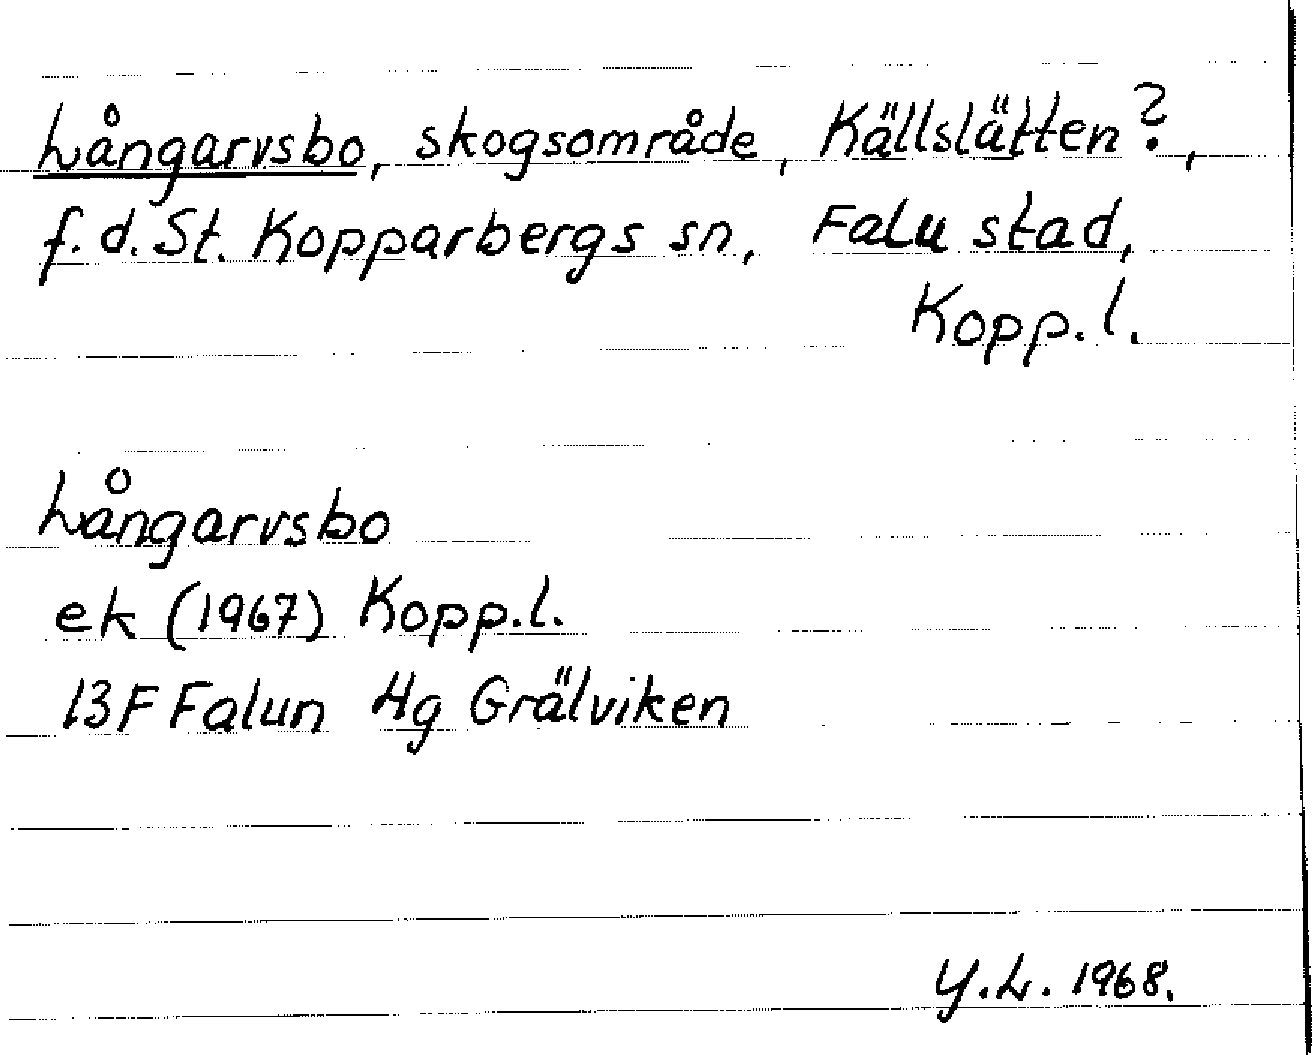 Långarvsbo, skogsområde, Källslätten?,
f.d. St. Kopparbergs sn, Falu stad,
Kopp.l.
Långarvsbo
ek (1967) Kopp.l.
13F Falun 4g Grälviken
Y.L. 1968.